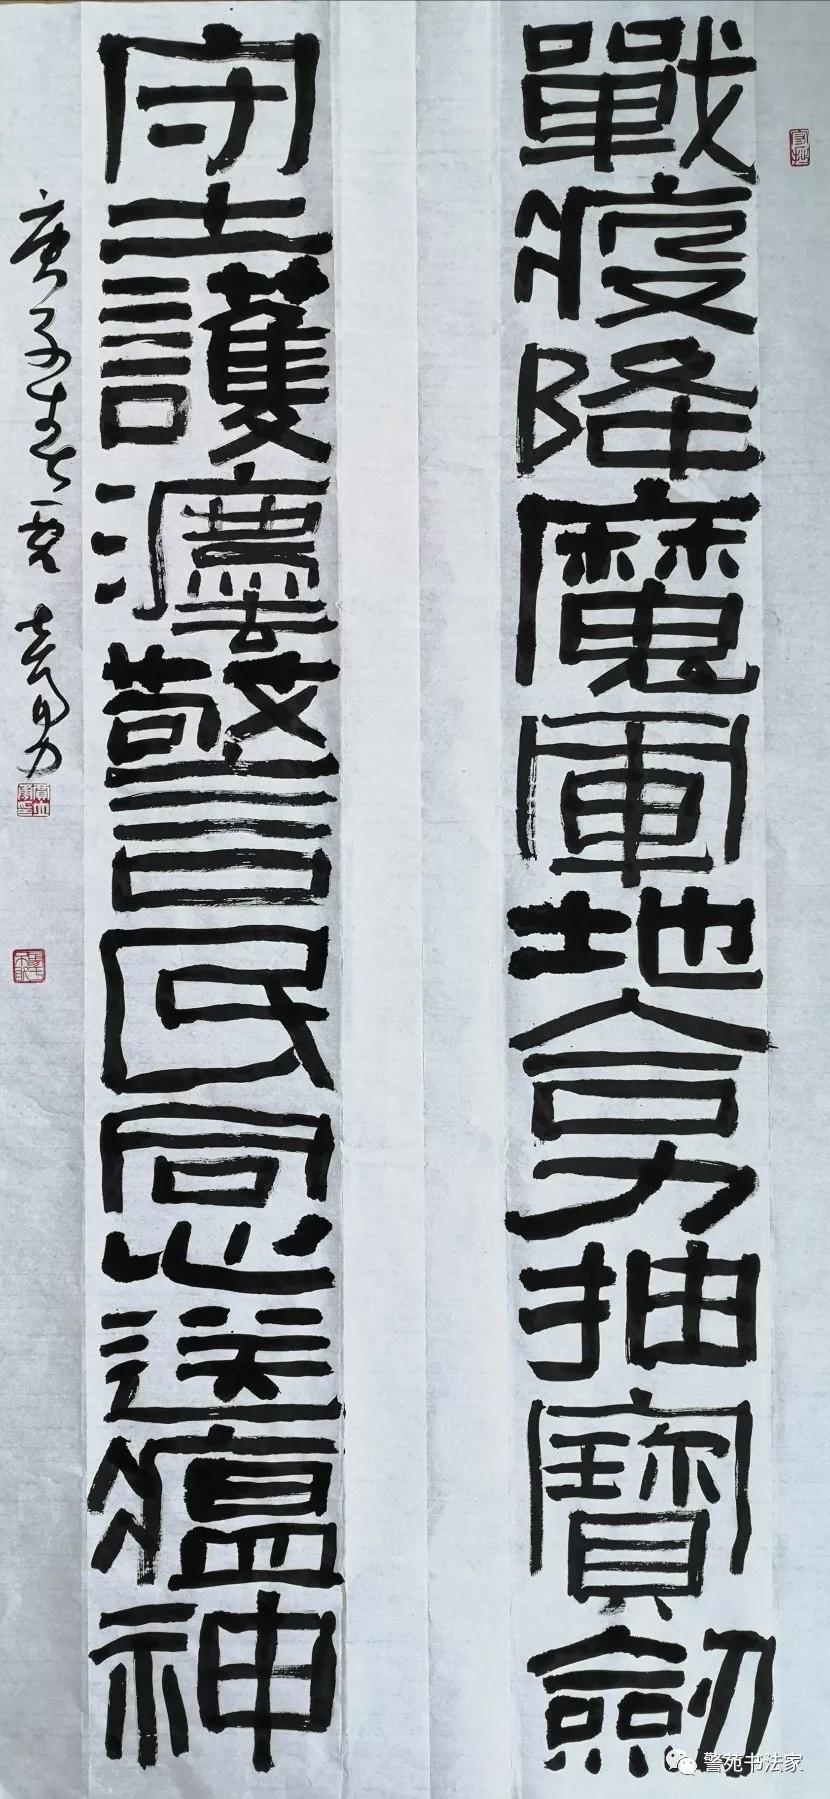 戰疫降魔軍地合力抽寶劍
守土護灋警民同心送瘟神
庚子春夏 志勇力
警苑书法家